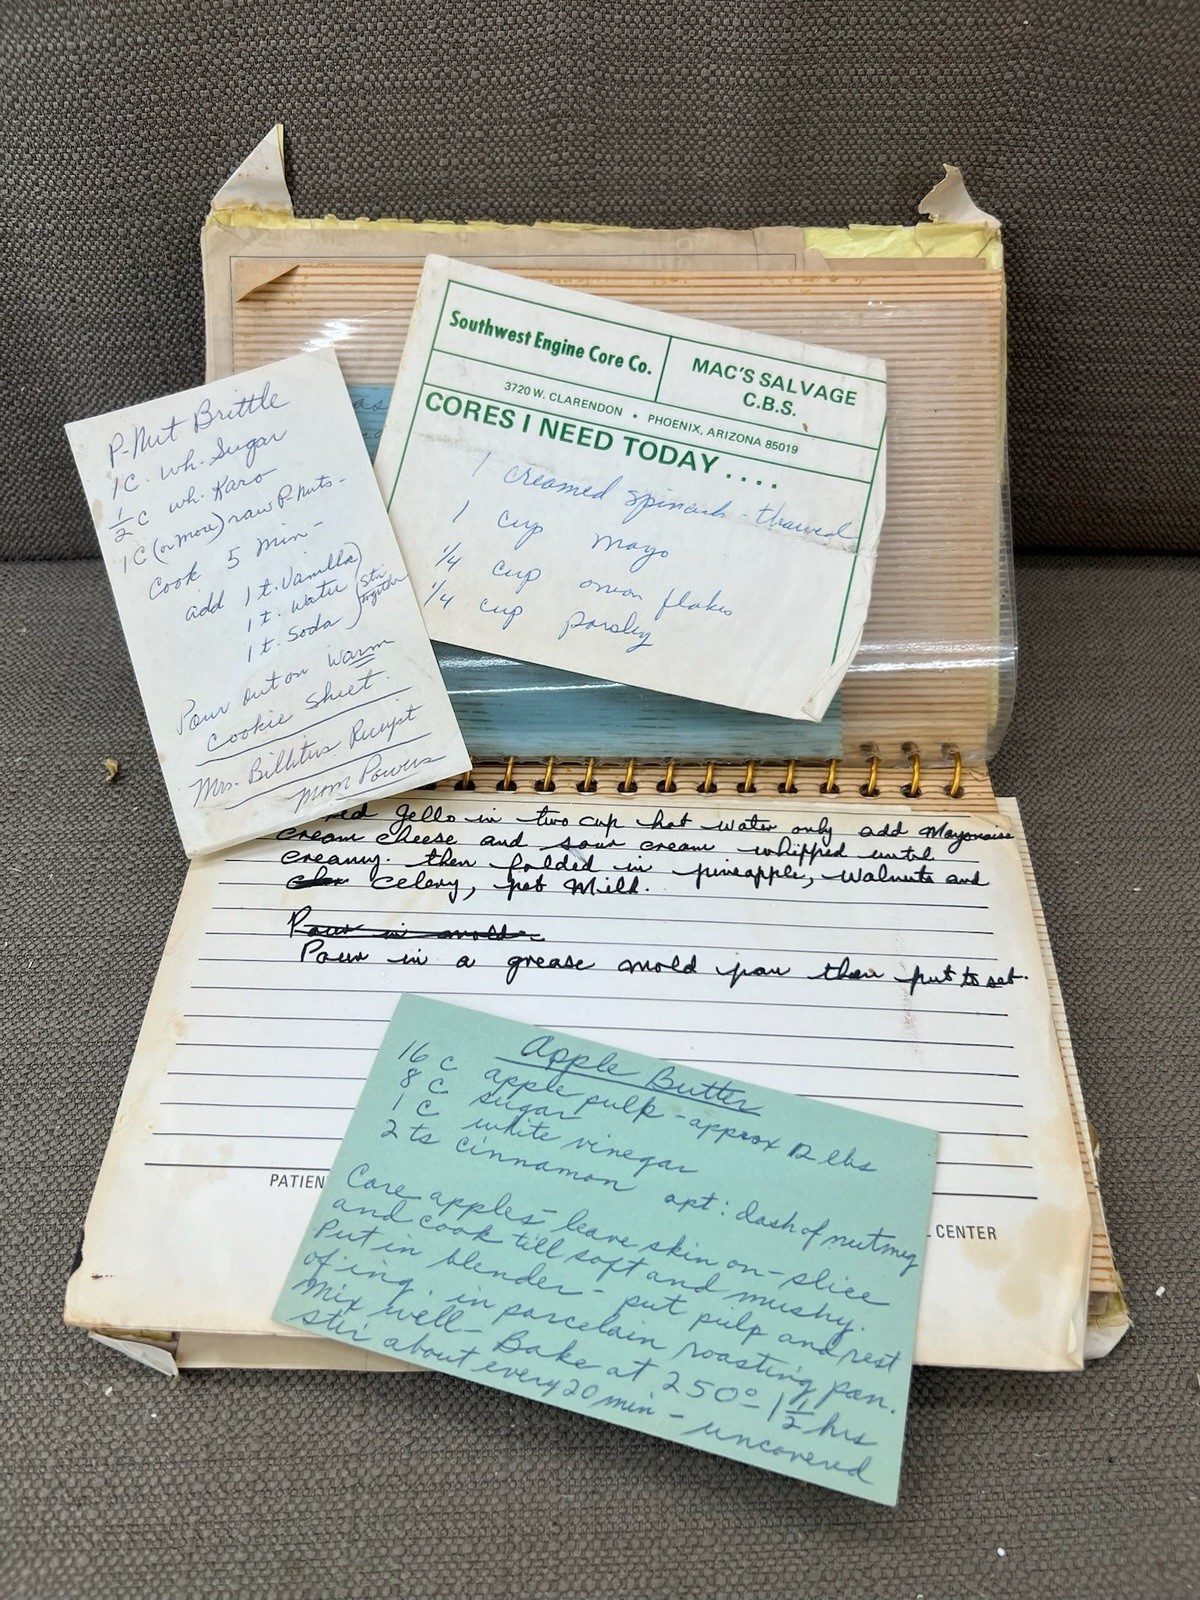 P-Nut Brittle
1C. wh. Sugar
1/2 C wh. Karo
1C (or more) raw P-nuts-
Cook 5 min-
add 1 t. Vanilla
1 t. Water
1 t. Soda
Stir
together
Pour out on warm
Cookie Sheet.
Mrs. Receipt
Mom Powers
Southwest Engine Core Co.
MAC'S SALVAGE
C.B.S.
3720 W. CLARENDON • PHOENIX, ARIZONA 85019
CORES I NEED TODAY ....
1 creamed spinach - thawed
1 cup mayo
1/4 cup onion flakes
1/4 cup parsley
Jello in two cup hot water only add Mayonaise
cream cheese and sour cream whipped until
creamy. then folded in pineapple, walnuts and
celery, pet Milk.
Pour in mold.
Pour in a grease mold pan then put to set.
PATIEN
CENTER
Apple Butter
16 C apple pulp - approx 12 lbs
8 C sugar
1 C white vinegar
2 ts cinnamon opt: dash of nutmeg
Core apples - leave skin on - slice
and cook till soft and mushy.
Put in blender - put pulp and rest
of ing. in porcelain roasting pan.
Mix well - Bake at 250° 1 1/2 hrs
stir about every 20 min - uncovered